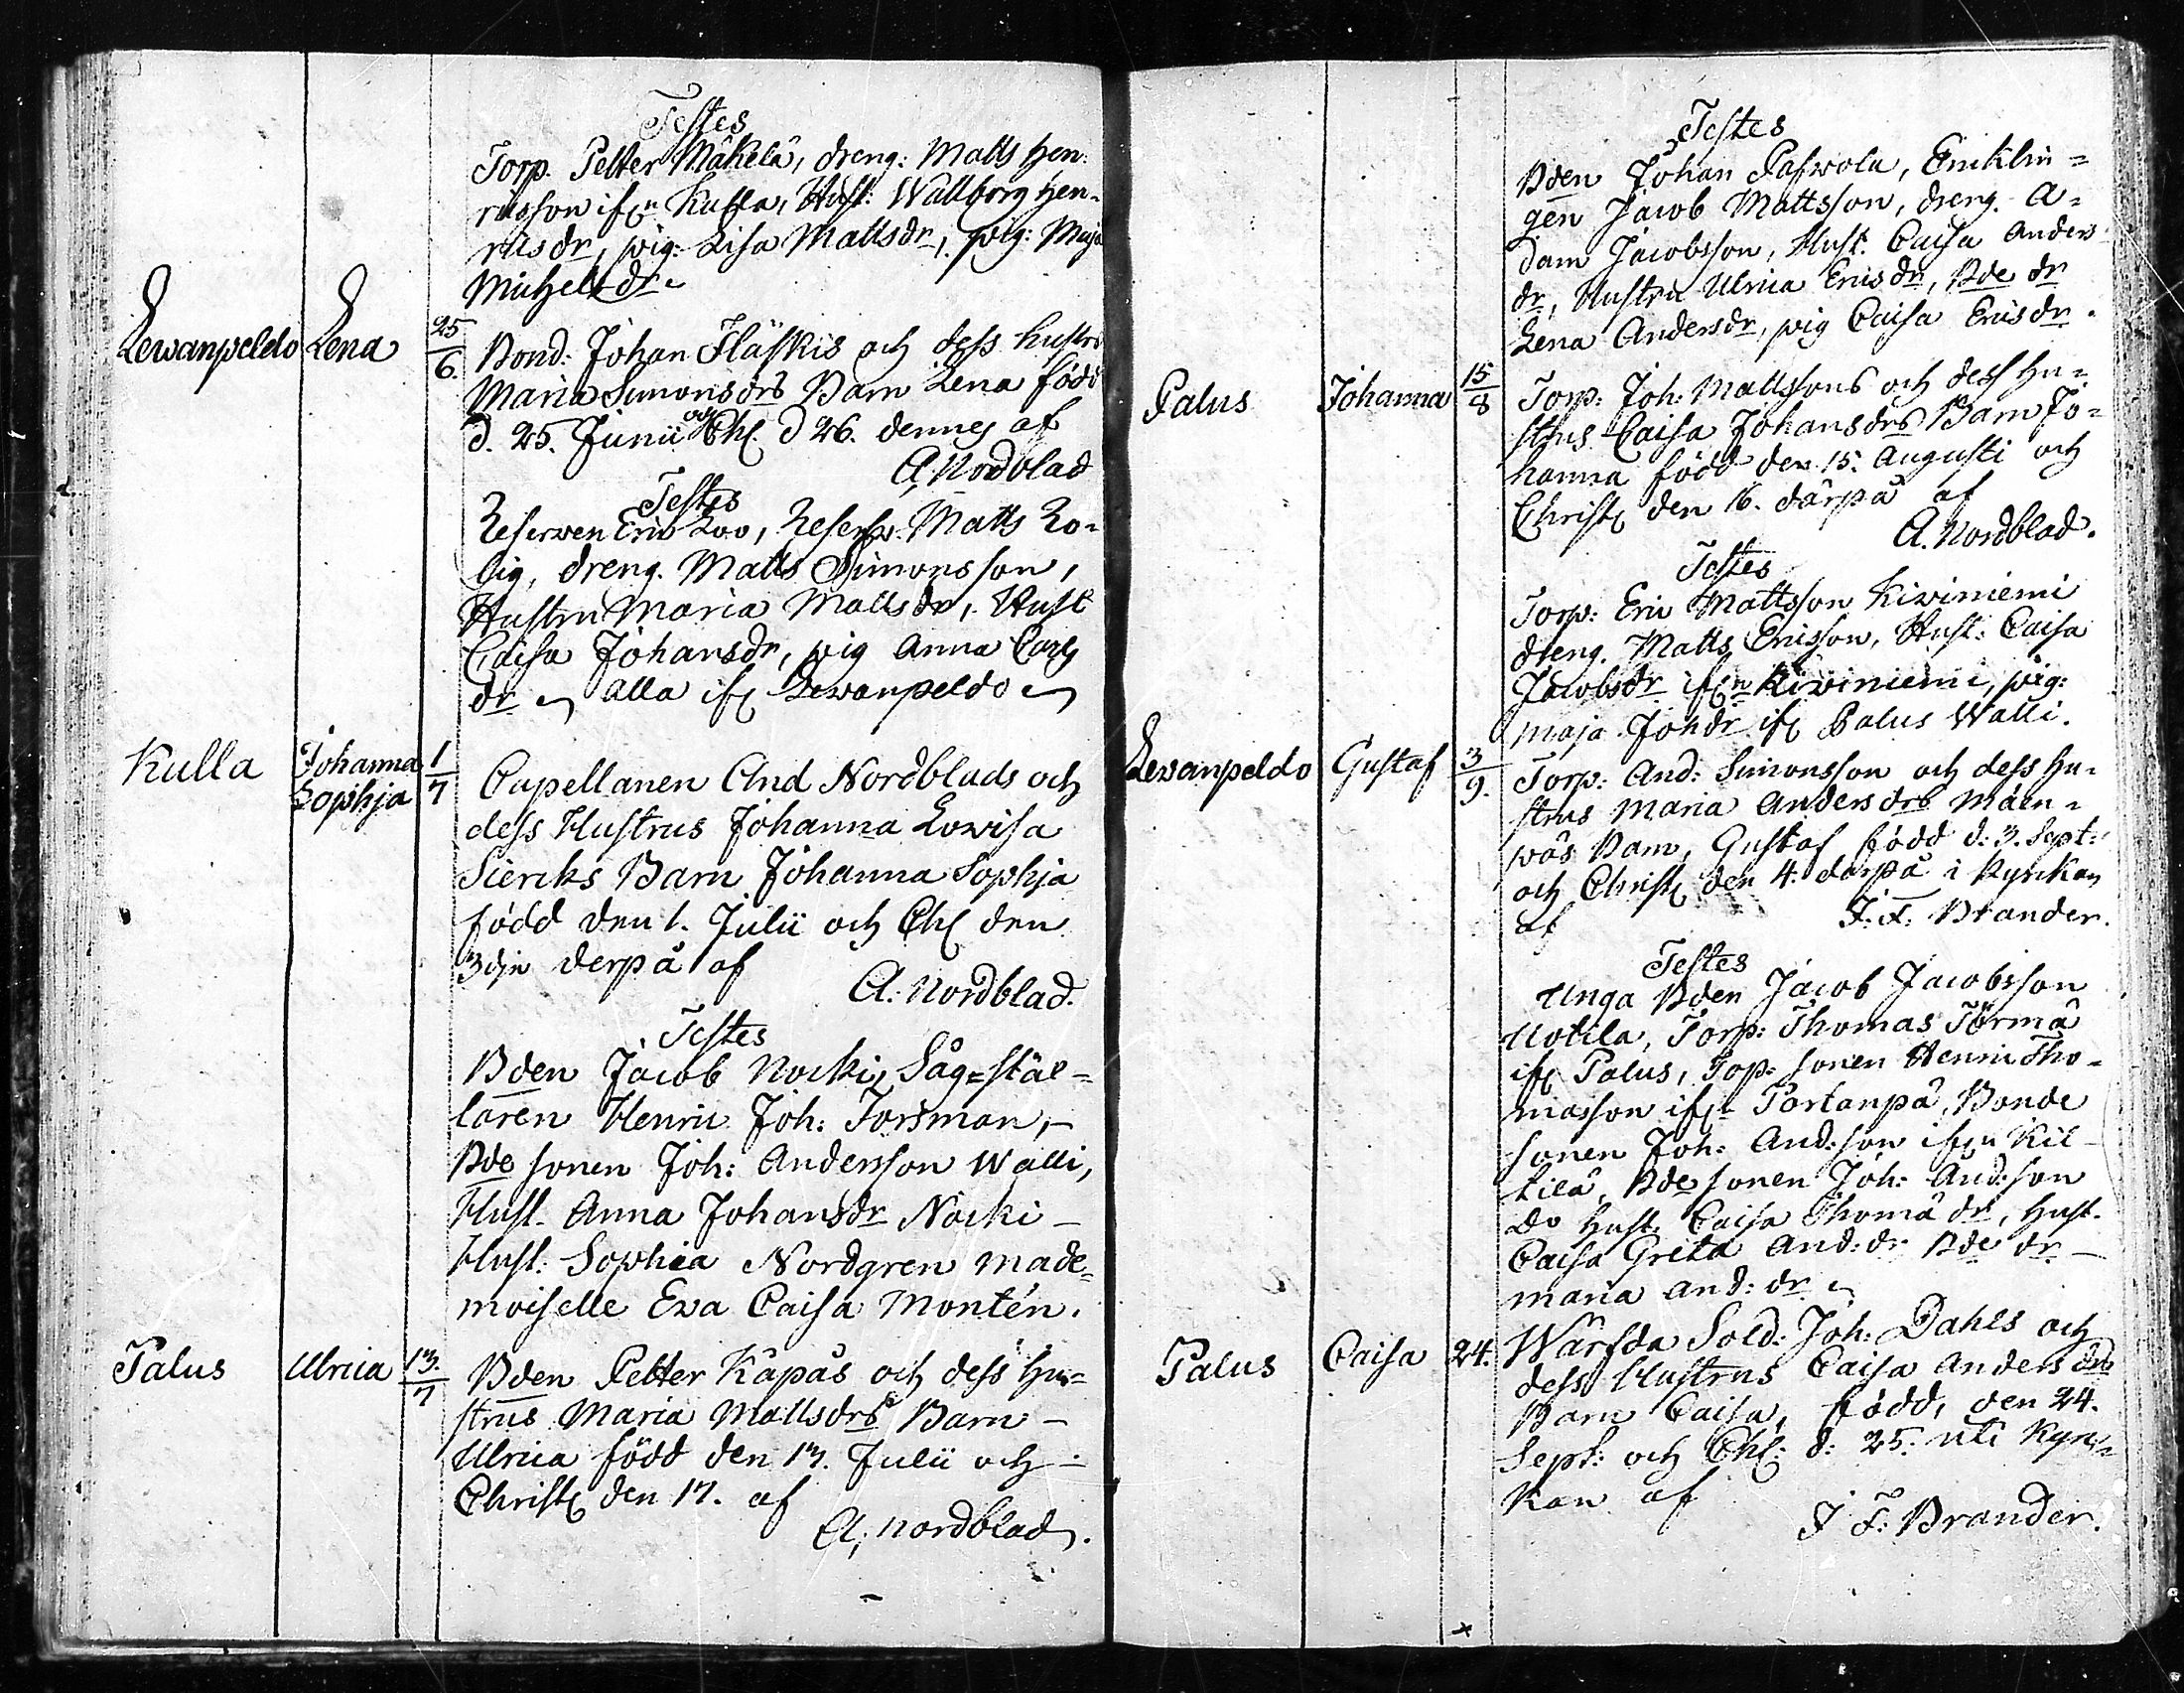 Testes
Torp. Petter Mäkelä, dreng: Matts Hen-
ricsson ifrn Kulla, Hust: Wallborg Hen-
rics dr, pig: Lisa Mattsdr, pig: Maja
Michelsdr
Lewanpeldo Lena 25/6. Bond: Johan Fläskis och dess hustru
Maria Simonsdrs Barn Lena född
d. 25. Junii och Chr. d 26. dennes af
A. Nordblad
Testes
Reserven Eric Roo, Reserv. Matts Ro-
lig, dreng. Matts Simonsson,
Hustru Maria Mattsdr, Hust
Caisa Johansdr, pig Anna Carls
dr alla ifr Lewanpeldo
Kulla Johanna Sophja 1/7 Capellanen And Nordblads och
dess Hustrus Johanna Lovisa
Siercks Barn Johanna Sophja
född den 1. Julii och Chr den
3dje derpå af
A. Nordblad.
Testes
Bden Jacob Nocki, Såg-stäl-
laren Henric Joh: Forsman,
Bde sonen Joh: Andersson Walli,
Hust. Anna Johansdr Nocki
Hust: Sophia Nordgren made-
moiselle Eva Caisa Montén.
Palus Ulrica 13/7 Bden Petter Kåpås och dess Hu-
strus Maria Mattsdrs Barn
Ulrica född den 13. Julii och
Christ den 17. af
A, Nordblad.
Testes
Bden Johan Pafwola, Enklin-
gen Jacob Mattsson, dreng. A-
dam Jacobsson, Hust. Caisa Anders
dr, Hustru Ulrica Ericsdr, Bde dr
Lena Andersdr, pig Caisa Ericsdr.
Palus Johanna 15/8 Torp: Joh: Mattssons och dess Hu-
strus Caisa Johansdrs Barn Jo-
hanna född den 15. Augusti och
Christ den 16. därpå af
A. Nordblad.
Testes
Torp: Eric Mattsson Kiviniemi
dreng. Matts Ericsson, Hust: Caisa
Jacobsdr ifrn Kiviniemi, pig:
Maja Johdr ifr Palus Walli.
Lewanpeldo Gustaf 3/9. Torp: And: Simonsson och dess Hu-
strus Maria Andersdrs Mäen-
pås Barn, Gustaf född d: 3. Sept:
och Christ den 4. därpå i Kyrkan
af J: F: Brander.
Testes
Unga Bden Jacob Jacobsson
Uotila, Torp: Thomas Törmä
ifr Palus, Torp: sonen Henric Tho-
masson ifrn Portanpå, Bonde
sonen Joh: And:son ifrn Kil-
kilä, Bde sonen Joh: And:son
Do Hust. Caisa Thomä dr, Hust.
Caisa Greta And: dr Bde dr
Maria And: dr
Palus Caisa 24. Wärfda Sold: Joh: Dahls och
dess Hustrus Caisa Anders drs
Barn Caisa, född, den 24.
Sept: och Chr: d: 25: uti Kyr-
kan af
J F: Brander.